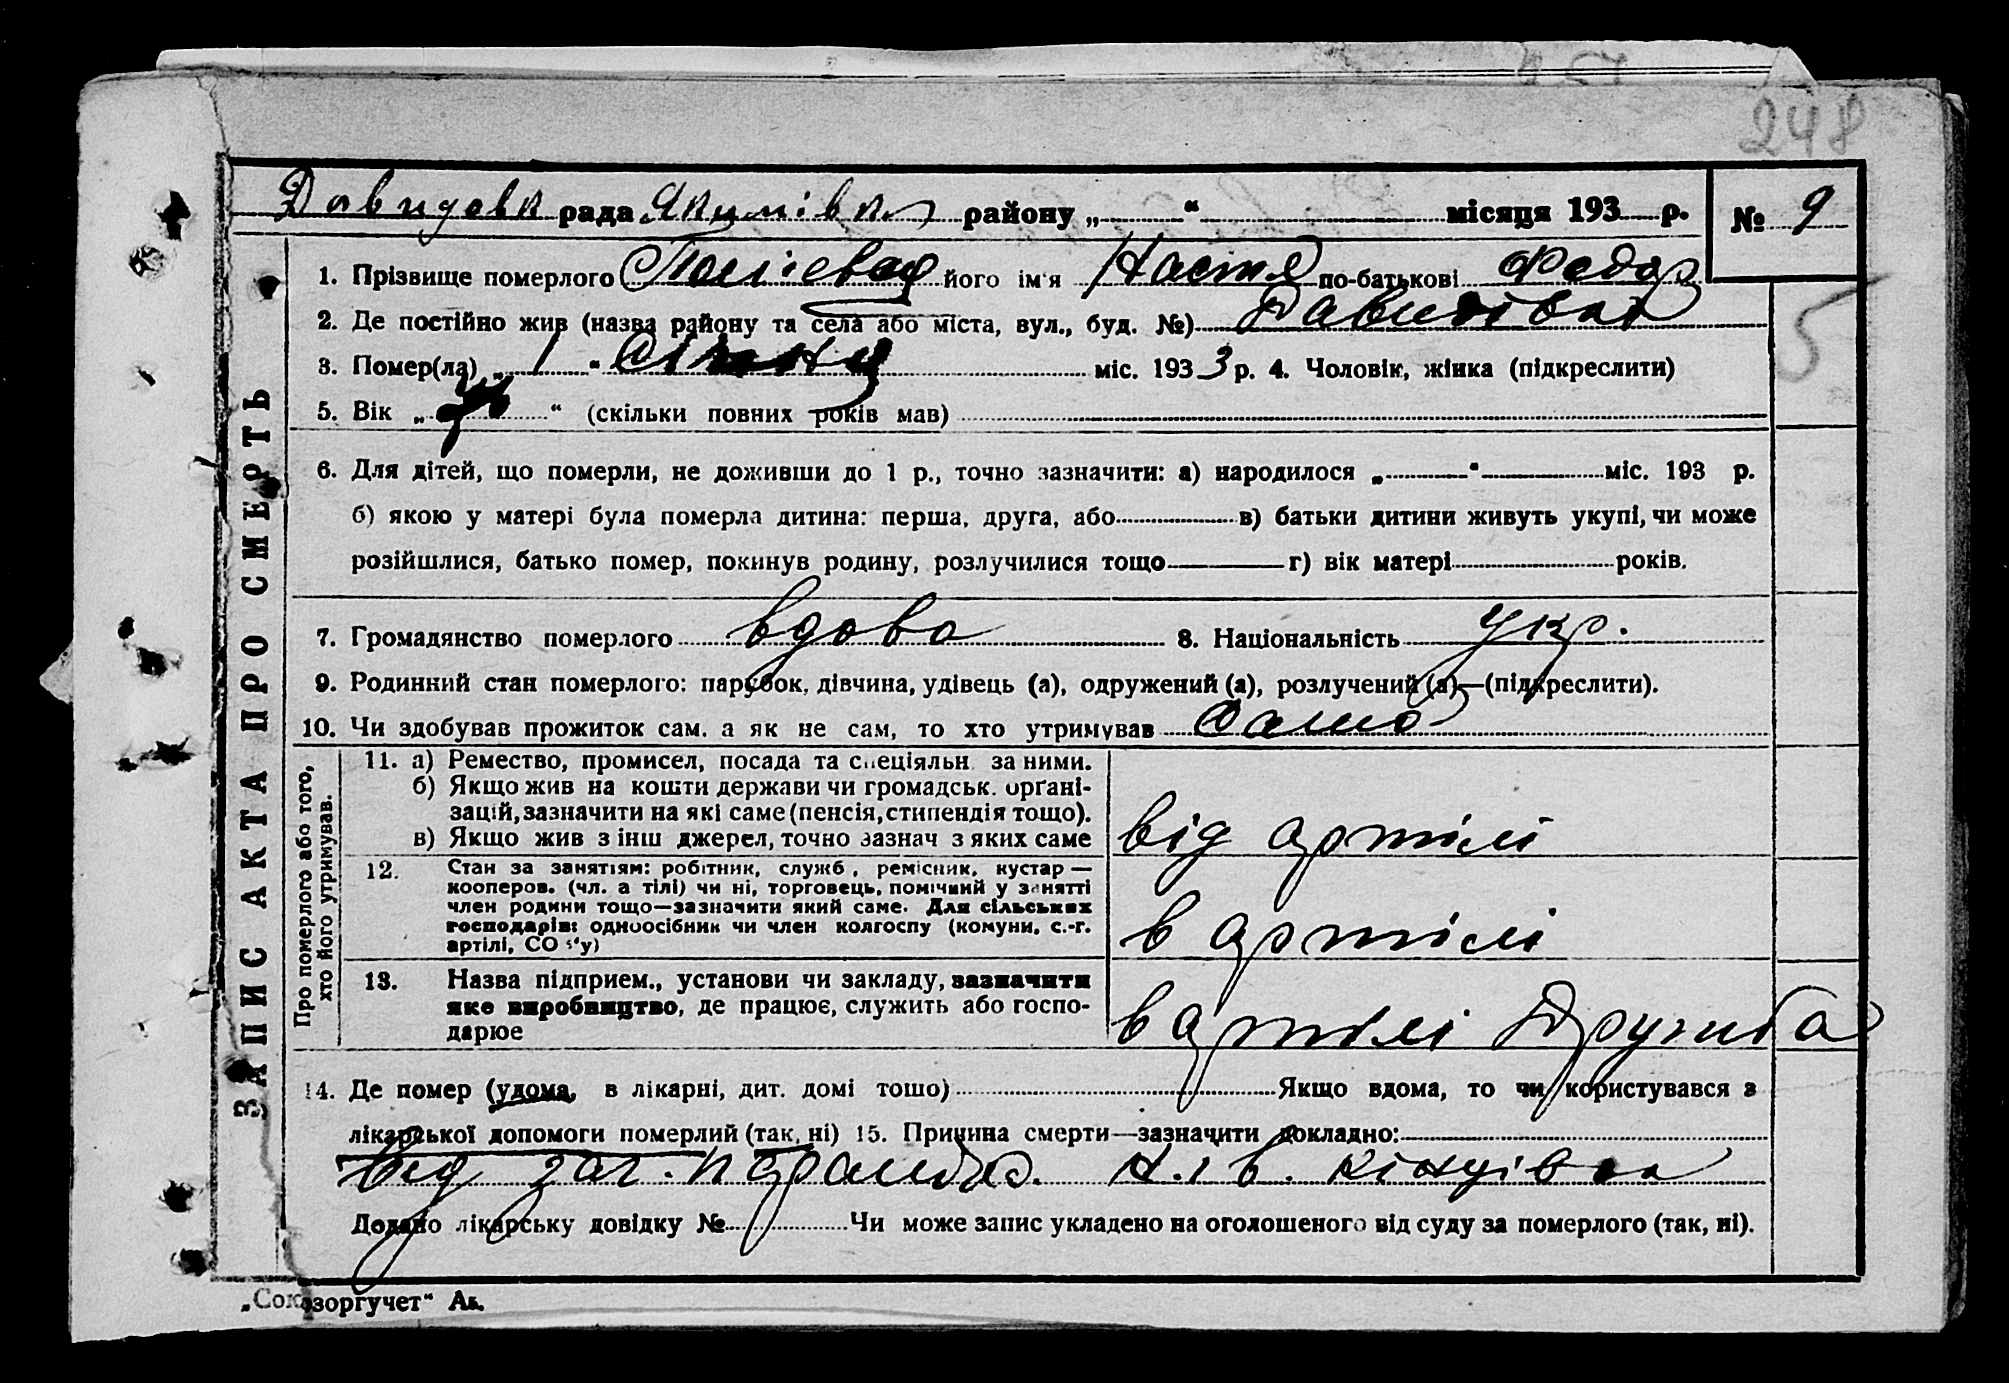 248
Давидовк рада Якимівка району „ “ місяця 193 р. № 9
1. Прізвище померлого його ім'я Настя по-батькові Федор
2. Де постійно жив (назва району та села або міста, вул., буд. №) Давидівка
3. Помер(ла) „ 1 “ міс. 193 3 р. 4. Чоловік, жінка (підкреслити)
5
5. Вік „ “ (скільки повних років мав)
6. Для дітей, що померли, не доживши до 1 р., точно зазначити: а) народилося „ “ міс. 193 р.
б) якою у матері була померла дитина: перша, друга, або в) батьки дитини живуть укупі, чи може
розійшлися, батько помер, покинув родину, розлучилися тощо г) вік матері років.
7. Громадянство померлого вдова 8. Національність Укр.
9. Родинний стан померлого: парубок, дівчина, удівець (а), одружений (а), розлучений (а)—(підкреслити).
10. Чи здобував прожиток сам, а як не сам, то хто утримував Само
ЗАПИС АКТА ПРО СМЕРТЬ
Про померлого або того,
хто його утримував.
11. а) Ремество, промисел, посада та спеціяльн. за ними.
б) Якщо жив на кошти держави чи громадськ. орґані-
зацій, зазначити на які саме (пенсія, стипендія тощо).
в) Якщо жив з інш джерел, точно зазнач з яких саме
від артілі
12. Стан за заняттям: робітник, служб, ремісник, кустар —
кооперов. (чл. а тілі) чи ні, торговець, помічний у занятті
член родини тощо—зазначити який саме. Для сільських
господарів: одноосібник чи член колгоспу (комуни, с.-г.
артілі, СО З'у)
в артілі
13. Назва підприєм., установи чи закладу, зазначити
яке виробництво, де працює, служить або госпо-
дарює
в артілі Дружба
14. Де помер (удома, в лікарні, дит. домі тощо) Якщо вдома, то чи користувався з
лікарської допомоги померлий (так, ні) 15. Причина смерти—зазначити докладно:
від заг.
Додано лікарську довідку № Чи може запис укладено на оголошеного від суду за померлого (так, ні).
„Союзоргучет“ Ак.